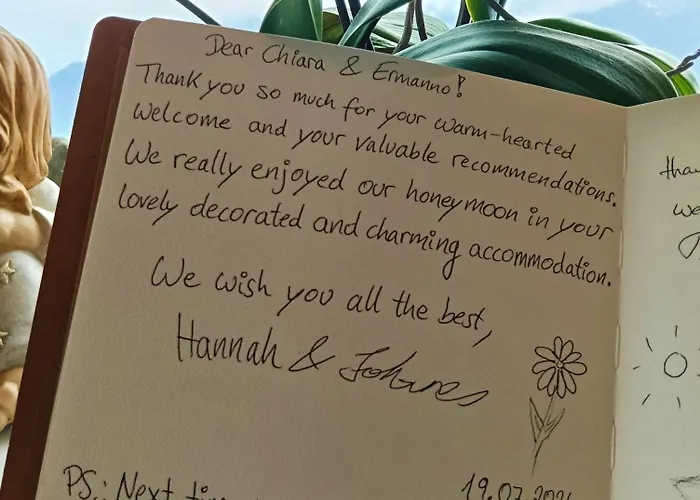 Dear Chiara & Ermanno!
Thank you so much for your warm-hearted
welcome and your valuable recommendations.
We really enjoyed our honeymoon in your
lovely decorated and charming accommodation.
We wish you all the best,
Hannah & Johannes
PS.: Next
19.07.